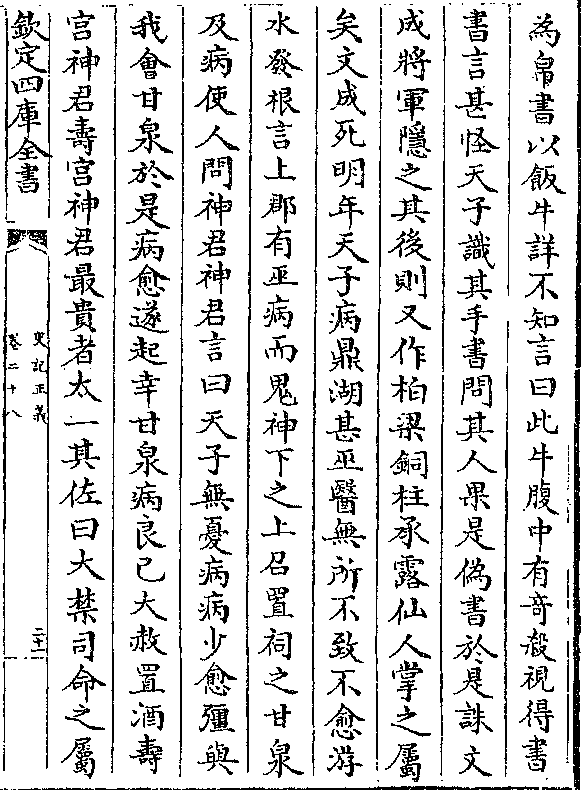 為帛書以飯牛詳不知言曰此牛腹中有竒殺視得書
書言甚怪天子識其手書問其人果是偽書於是誅文
成將軍隱之其後則又作柏梁銅柱承露仙人掌之屬
矣文成死明年天子病鼎湖甚巫醫無所不致不愈游
水發根言上郡有巫病而鬼神下之上召置祠之甘泉
及病使人問神君神君言曰天子無憂病病少愈彊與
我會甘泉於是病愈遂起幸甘泉病良已大赦置酒壽
宫神君壽宫神君最貴者太一其佐曰大禁司命之屬
欽定四庫全書
史記正義
卷二十八
二十一